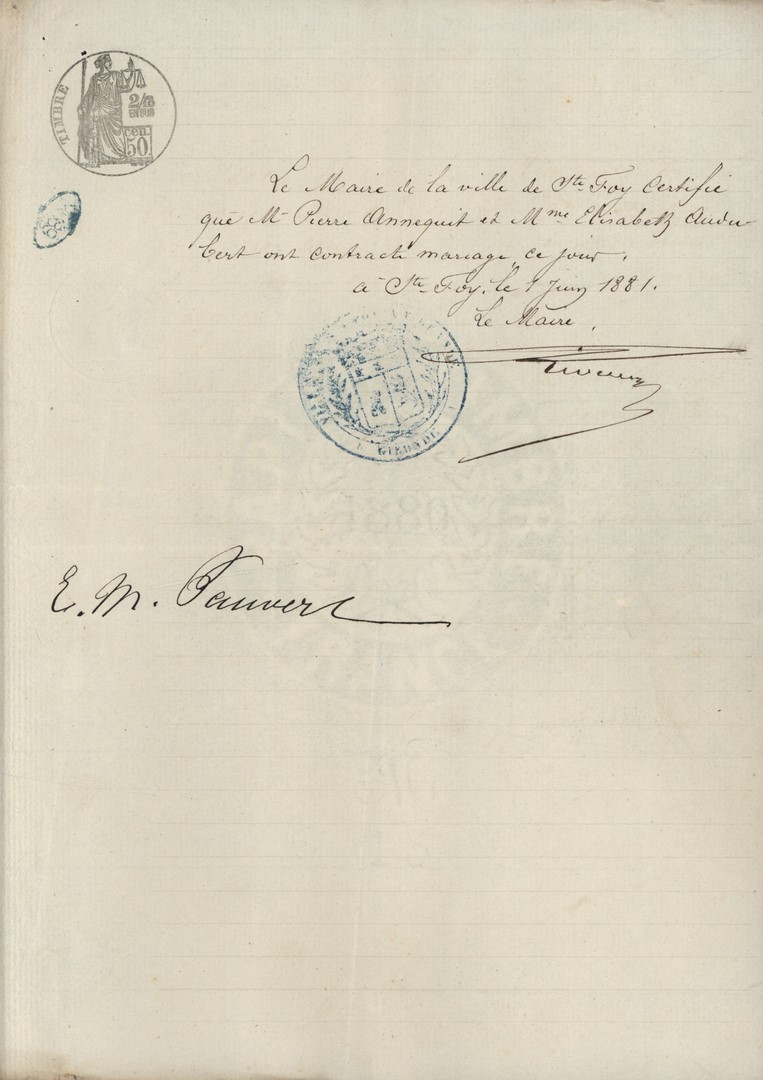 TIMBRE
2/10
EN SUS
50 cen.
Le Maire de la ville de Ste Foy Certifie
que Mr Pierre Annequit et Mme Elisabeth Audu-
bert ont contracté mariage, ce jour.
à Ste Foy, le 1 Juin 1881.
Le Maire,
GIRONDE
1880
E. M. Pauvert